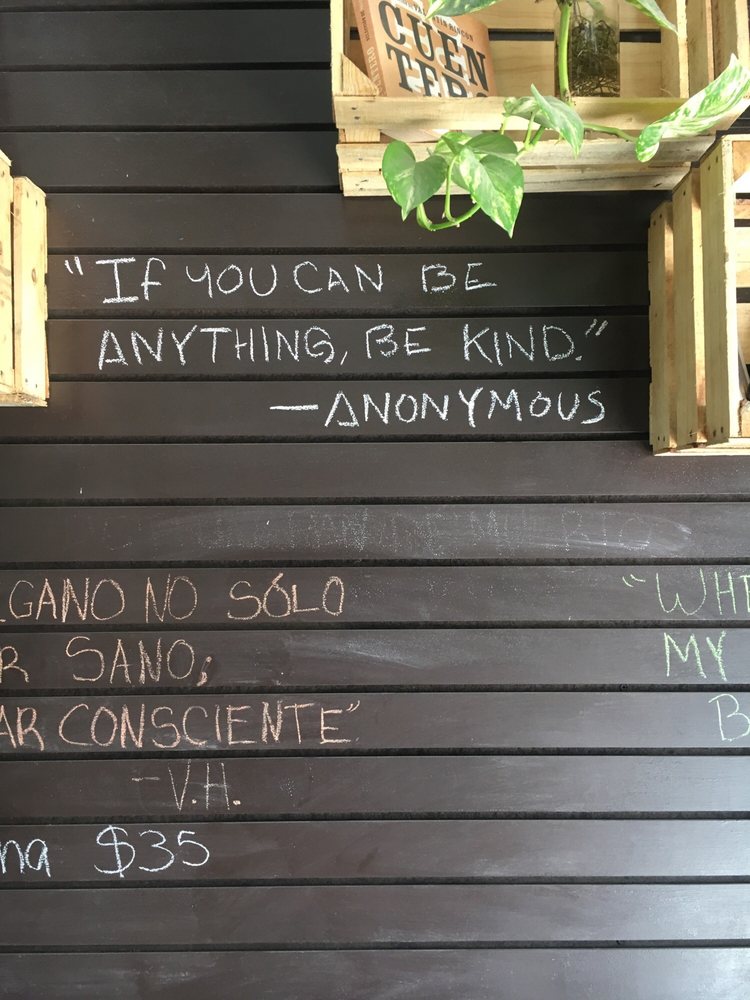 CUEN
“If YOU CAN BE
ANYTHING, BE KIND.”
—ANONYMOUS
GANO NO SÓLO
R SANO;
AR CONSCIENTE”
-V.H.
na $35
“WHT
MY
B